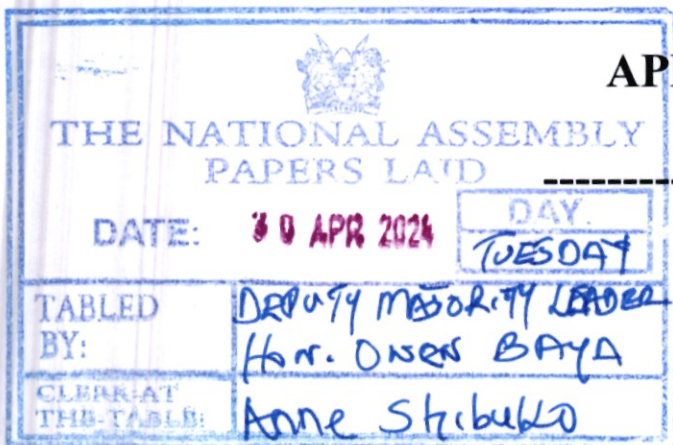 AP
THE NATIONAL ASSEMBLY
PAPERS LAID
DATE: 30 APR 2024
DAY.
TUESDAY
TABLED BY:
DEPUTY MAJORITY LEADER
Hon. OWEN BAYA
CLERK-AT THE-TABLE:
Anne Shibuko